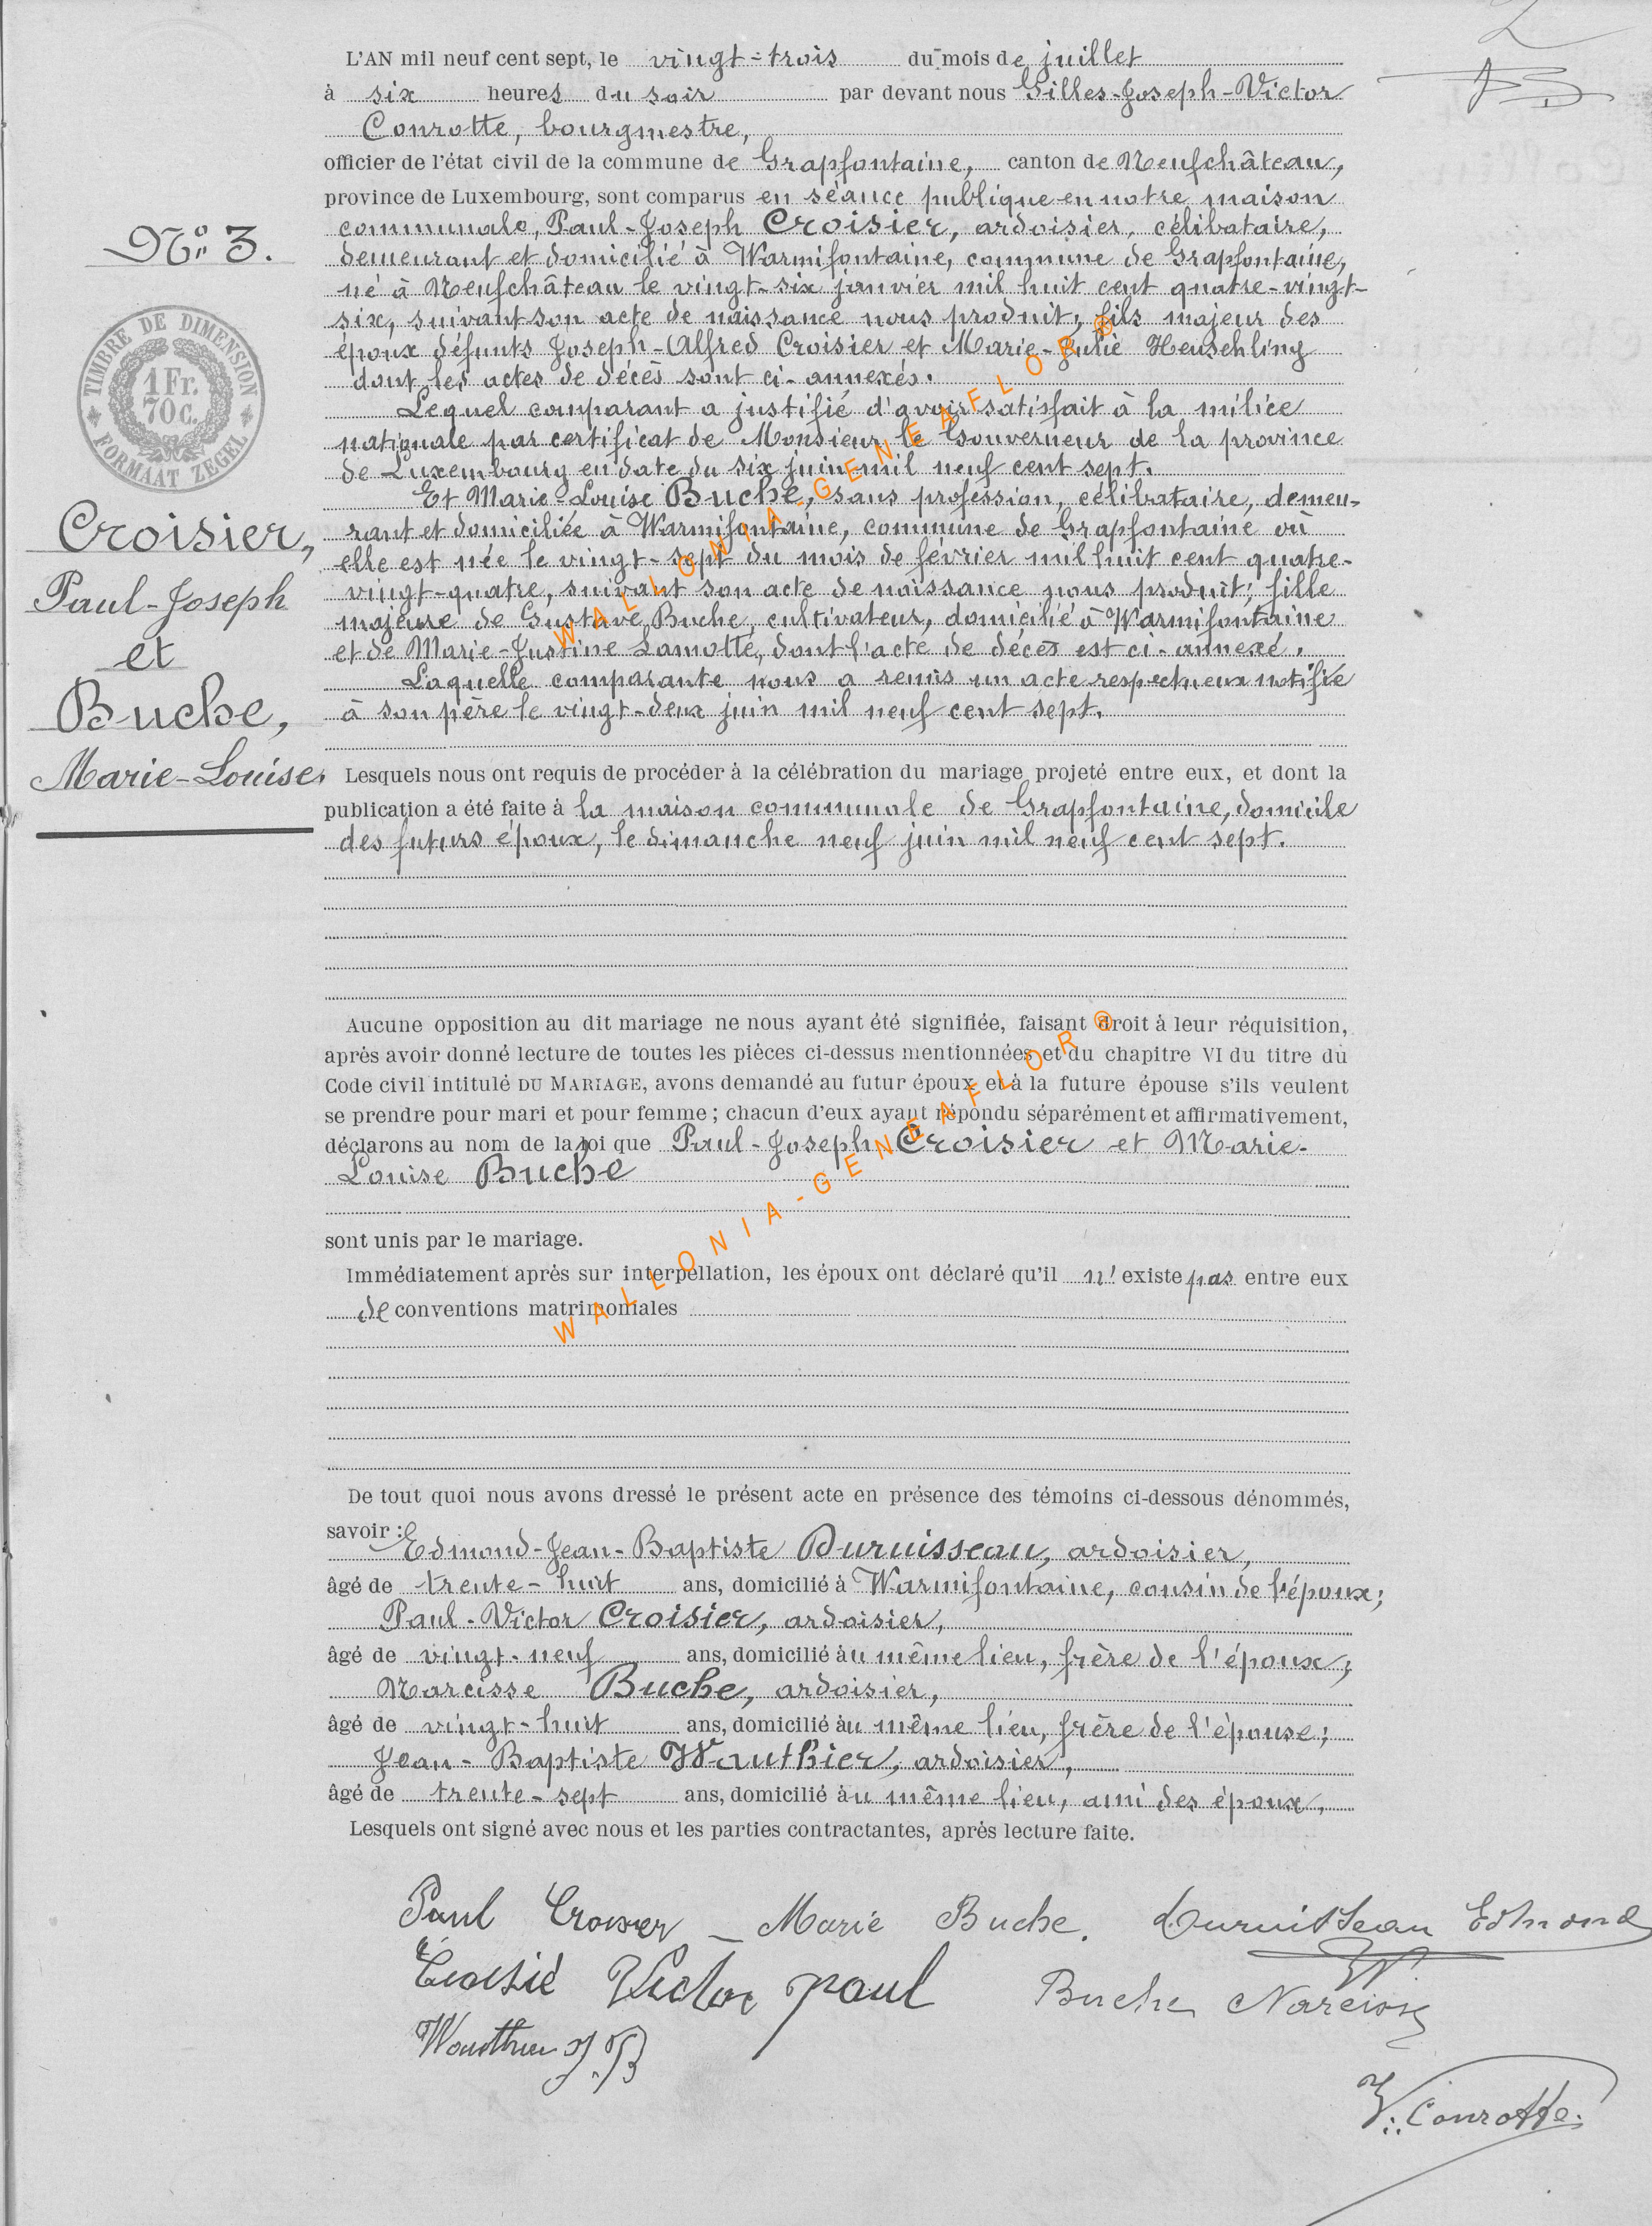 L'AN mil neuf cent sept, le vingt-trois du mois de juillet
à six heures du soir par devant nous Gilles-Joseph-Victor
Conrotte, bourgmestre,
officier de l'état civil de la commune de Grapfontaine, canton de Neufchâteau,
province de Luxembourg, sont comparus en séance publique en notre maison
communale, Paul-Joseph Croisier, ardoisier, célibataire,
demeurant et domicilié à Warmifontaine, commune de Grapfontaine,
né à Neufchâteau le vingt-six janvier mil huit cent quatre-vingt-
six, suivant son acte de naissance nous produit; fils majeur des
époux défunts Joseph-Alfred Croisier et Marie-Julie Heuschling
dont les actes de décès sont ci-annexés.
Lequel comparant a justifié d'avoir satisfait à la milice
nationale par certificat de Monsieur le Gouverneur de la province
de Luxembourg en date du six juin mil neuf cent sept.
Et Marie-Louise Buche, sans profession, célibataire, demeu-
rant et domiciliée à Warmifontaine, commune de Grapfontaine où
elle est née le vingt-sept du mois de février mil huit cent quatre-
vingt-quatre, suivant son acte de naissance nous produit; fille
majeure de Gustave Buche, cultivateur, domicilié à Warmifontaine
et de Marie-Justine Lamotte, dont l'acte de décès est ci-annexé.
Laquelle comparante nous a remis un acte respectueux notifié
à son père le vingt-deux juin mil neuf cent sept.
Nº 3.
TIMBRE DE DIMENSION
1 Fr.
70 c.
FORMAAT ZEGEL
Croisier,
Paul-Joseph
et
Buche,
Marie-Louise.
Lesquels nous ont requis de procéder à la célébration du mariage projeté entre eux, et dont la
publication a été faite à la maison communale de Grapfontaine, domicile
des futurs époux, le dimanche neuf juin mil neuf cent sept.
Aucune opposition au dit mariage ne nous ayant été signifiée, faisant droit à leur réquisition,
après avoir donné lecture de toutes les pièces ci-dessus mentionnées et du chapitre VI du titre du
Code civil intitulé DU MARIAGE, avons demandé au futur époux et à la future épouse s'ils veulent
se prendre pour mari et pour femme; chacun d'eux ayant répondu séparément et affirmativement,
déclarons au nom de la loi que Paul-Joseph Croisier et Marie-
Louise Buche
sont unis par le mariage.
Immédiatement après sur interpellation, les époux ont déclaré qu'il n'existe pas entre eux
de conventions matrimoniales
De tout quoi nous avons dressé le présent acte en présence des témoins ci-dessous dénommés,
savoir : Edmond-Jean-Baptiste Duruisseau, ardoisier,
âgé de trente-huit ans, domicilié à Warmifontaine, cousin de l'époux;
Paul-Victor Croisier, ardoisier,
âgé de vingt-neuf ans, domicilié au même lieu, frère de l'époux;
Narcisse Buche, ardoisier,
âgé de vingt-huit ans, domicilié au même lieu, frère de l'épouse;
Jean-Baptiste Wauthier, ardoisier,
âgé de trente-sept ans, domicilié au même lieu, ami des époux.
Lesquels ont signé avec nous et les parties contractantes, après lecture faite.
Paul Croisier _ Marie Buche. Duruisseau Edmond
Croisié Victor paul Buche Narcisse
Wauthier J.B
V. Conrotte.
WALLONIA-GENEAFLOR®
WALLONIA-GENEAFLOR®